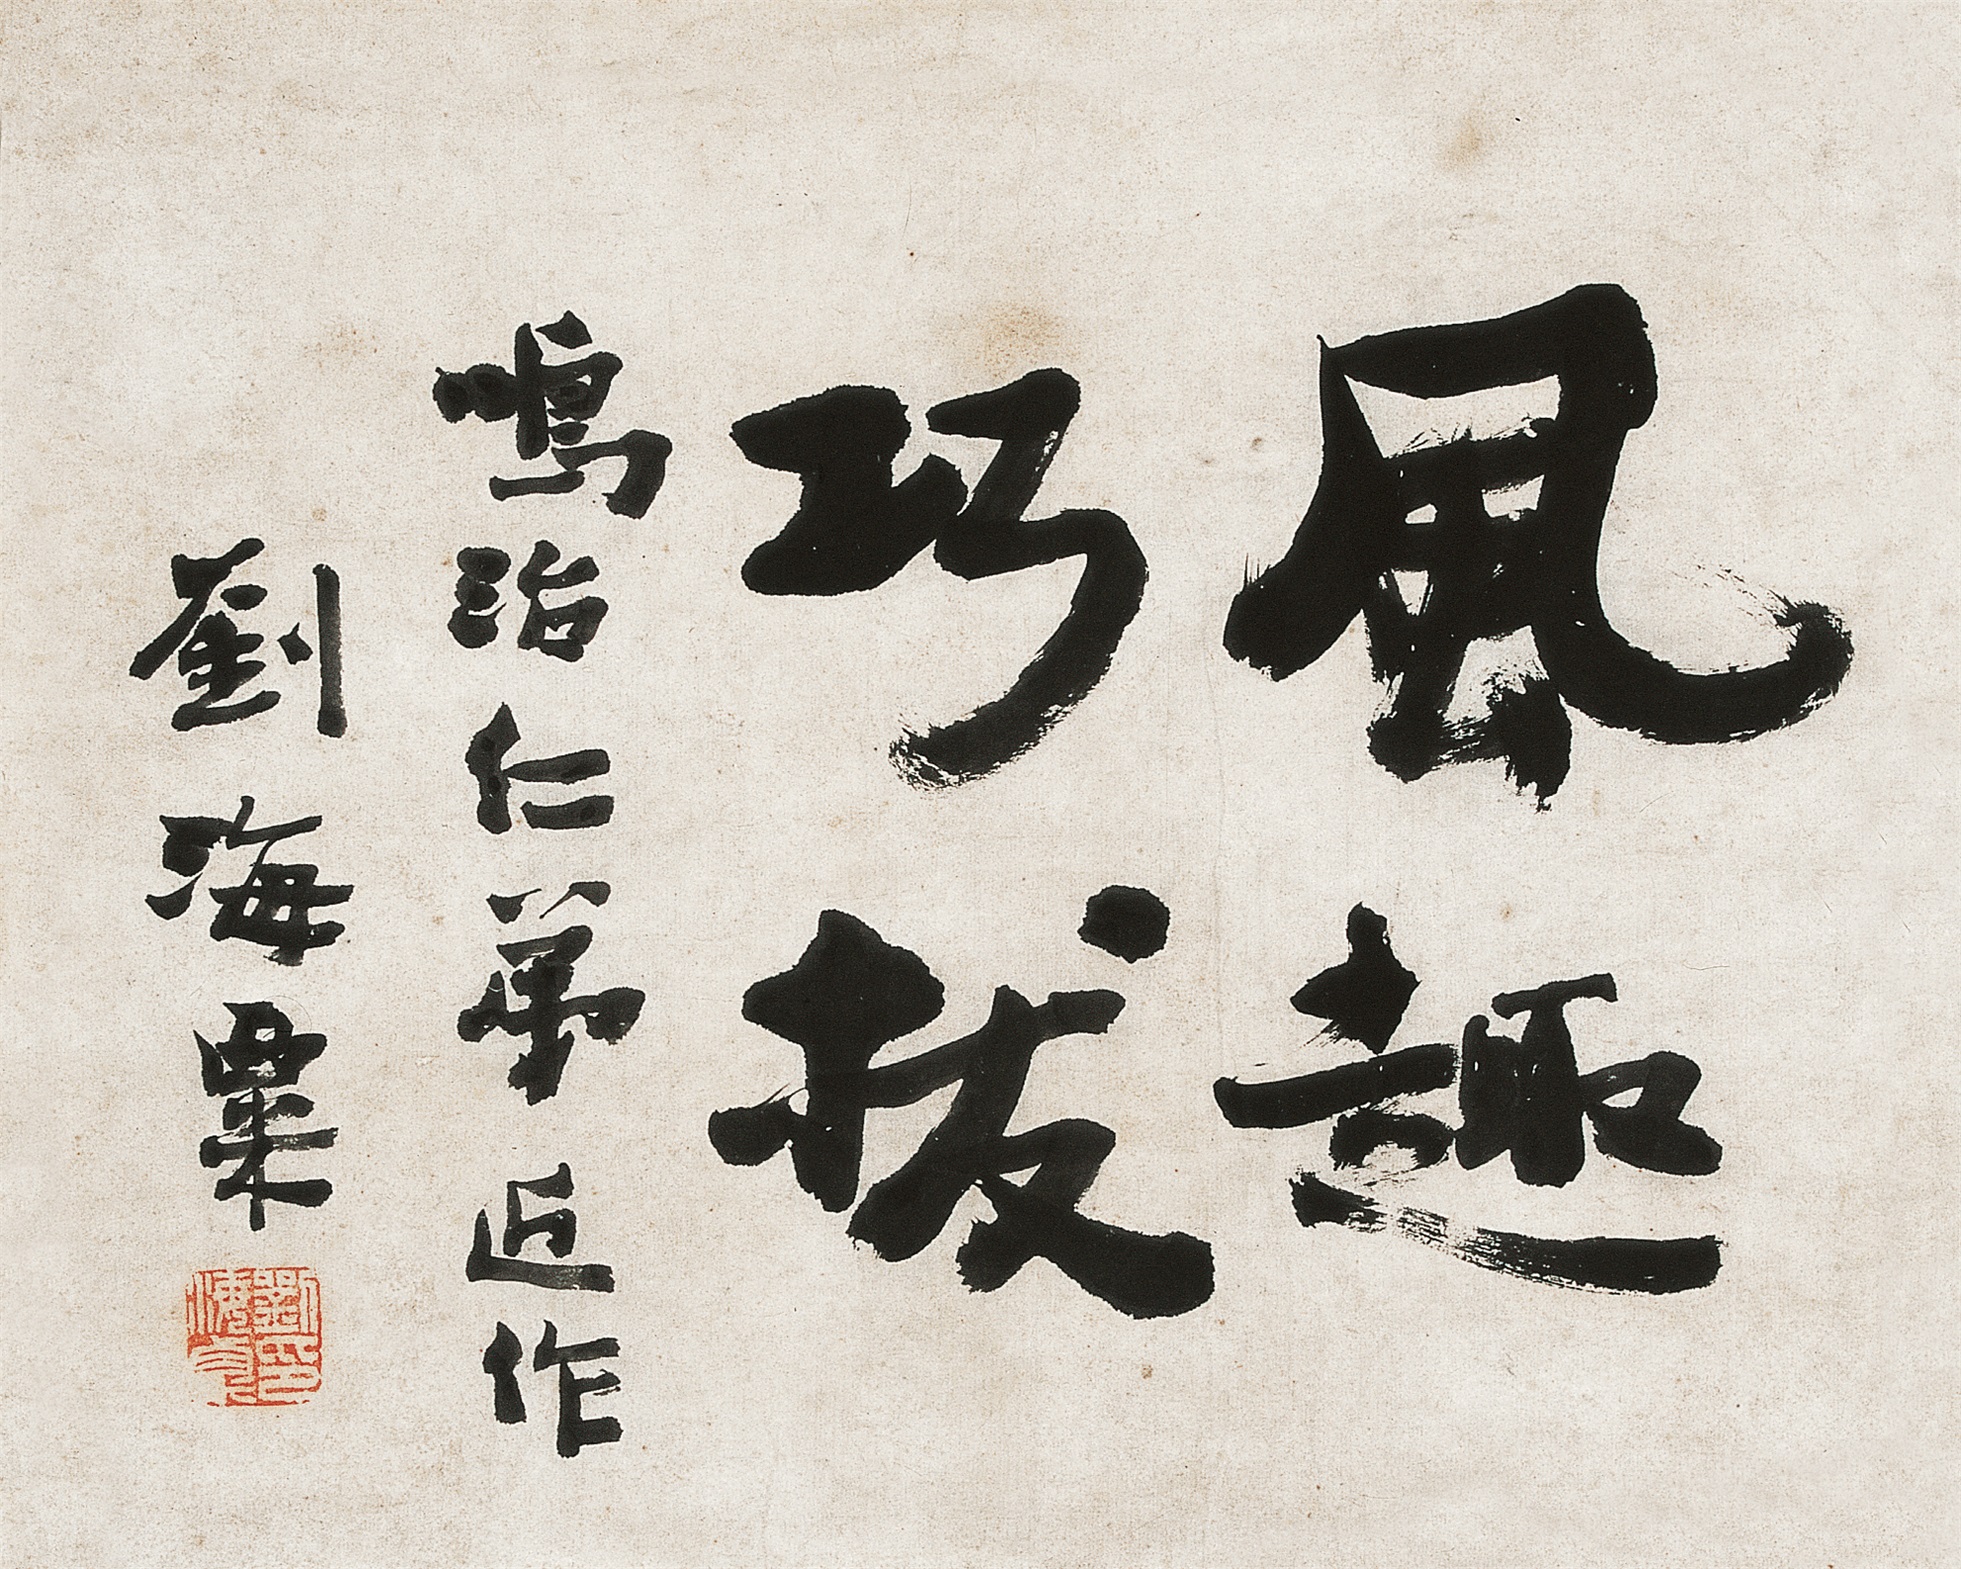 風趣
巧拔
鳴治仁弟近作
劉海粟